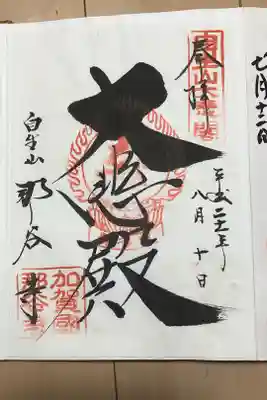 奉拝
平成二十一年
八月十日
大悲殿
自生山
那谷寺
加賀國
那谷寺
七月十二日